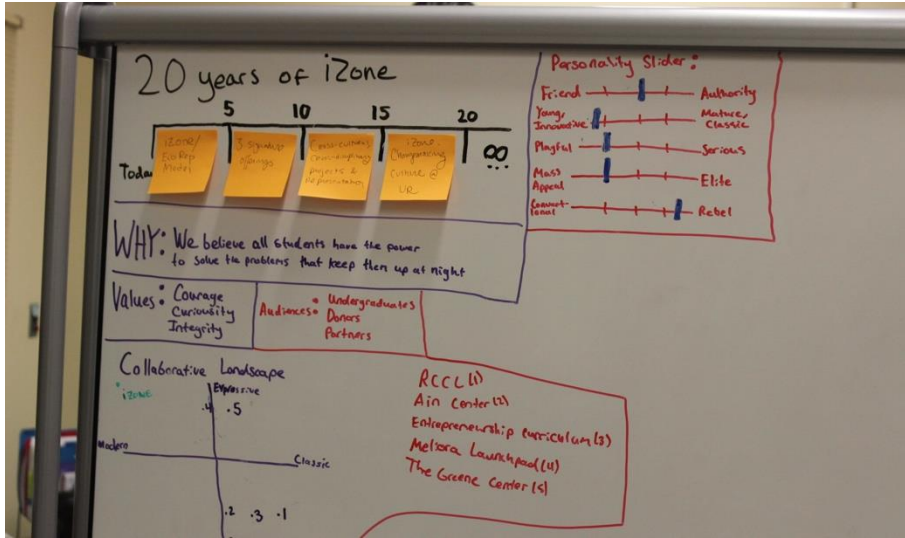 20 years of iZone
5 10 15 20
Today
iZone/
Model
3 signature
offerings
projects &
iZone -
Championing
culture @
UR
∞
...
WHY: We believe all students have the power
to solve the problems that keep them up at night
Values: Courage
Curiousity
Integrity
Audiences: Undergraduates
Donors
Partners
Personality Slider:
Friend Authority
Young, Innovative Mature, Classic
Playful Serious
Mass Appeal Elite
Rebel
Collaborative Landscape
iZONE
Expressive
.4 .5
Modern
Classic
.2 .3 .1
RCCL (1)
Ain Center (2)
Entrepreneurship curriculum (3)
Meliora Launchpad (4)
The Greene Center (5)